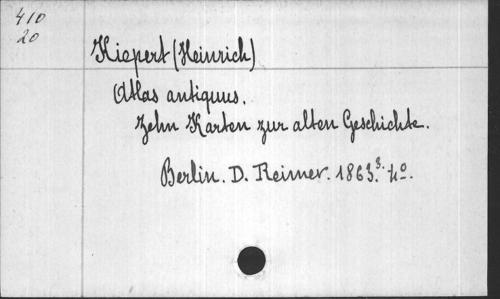 410
20
Kiepert (Heinrich)
Atlas antiquus.
Zehn Karten zur alten Geschichte.
Berlin. D. Reimer. 1863.³ 4°.